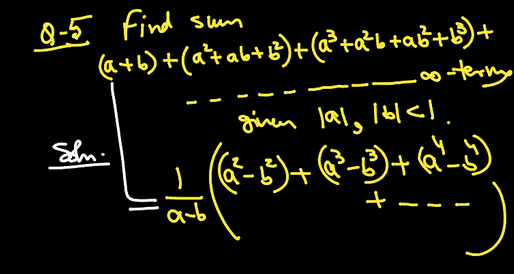 Q-5 Find sum
(a+b)+(a²+ab+b²)+(a³+a²b+ab²+b³)+
------ ∞-terms
given |a|, |b|<1.
Soln.
= 1/(a-b) ((a²-b²)+(a³-b³)+(a⁴-b⁴)
+ ---)